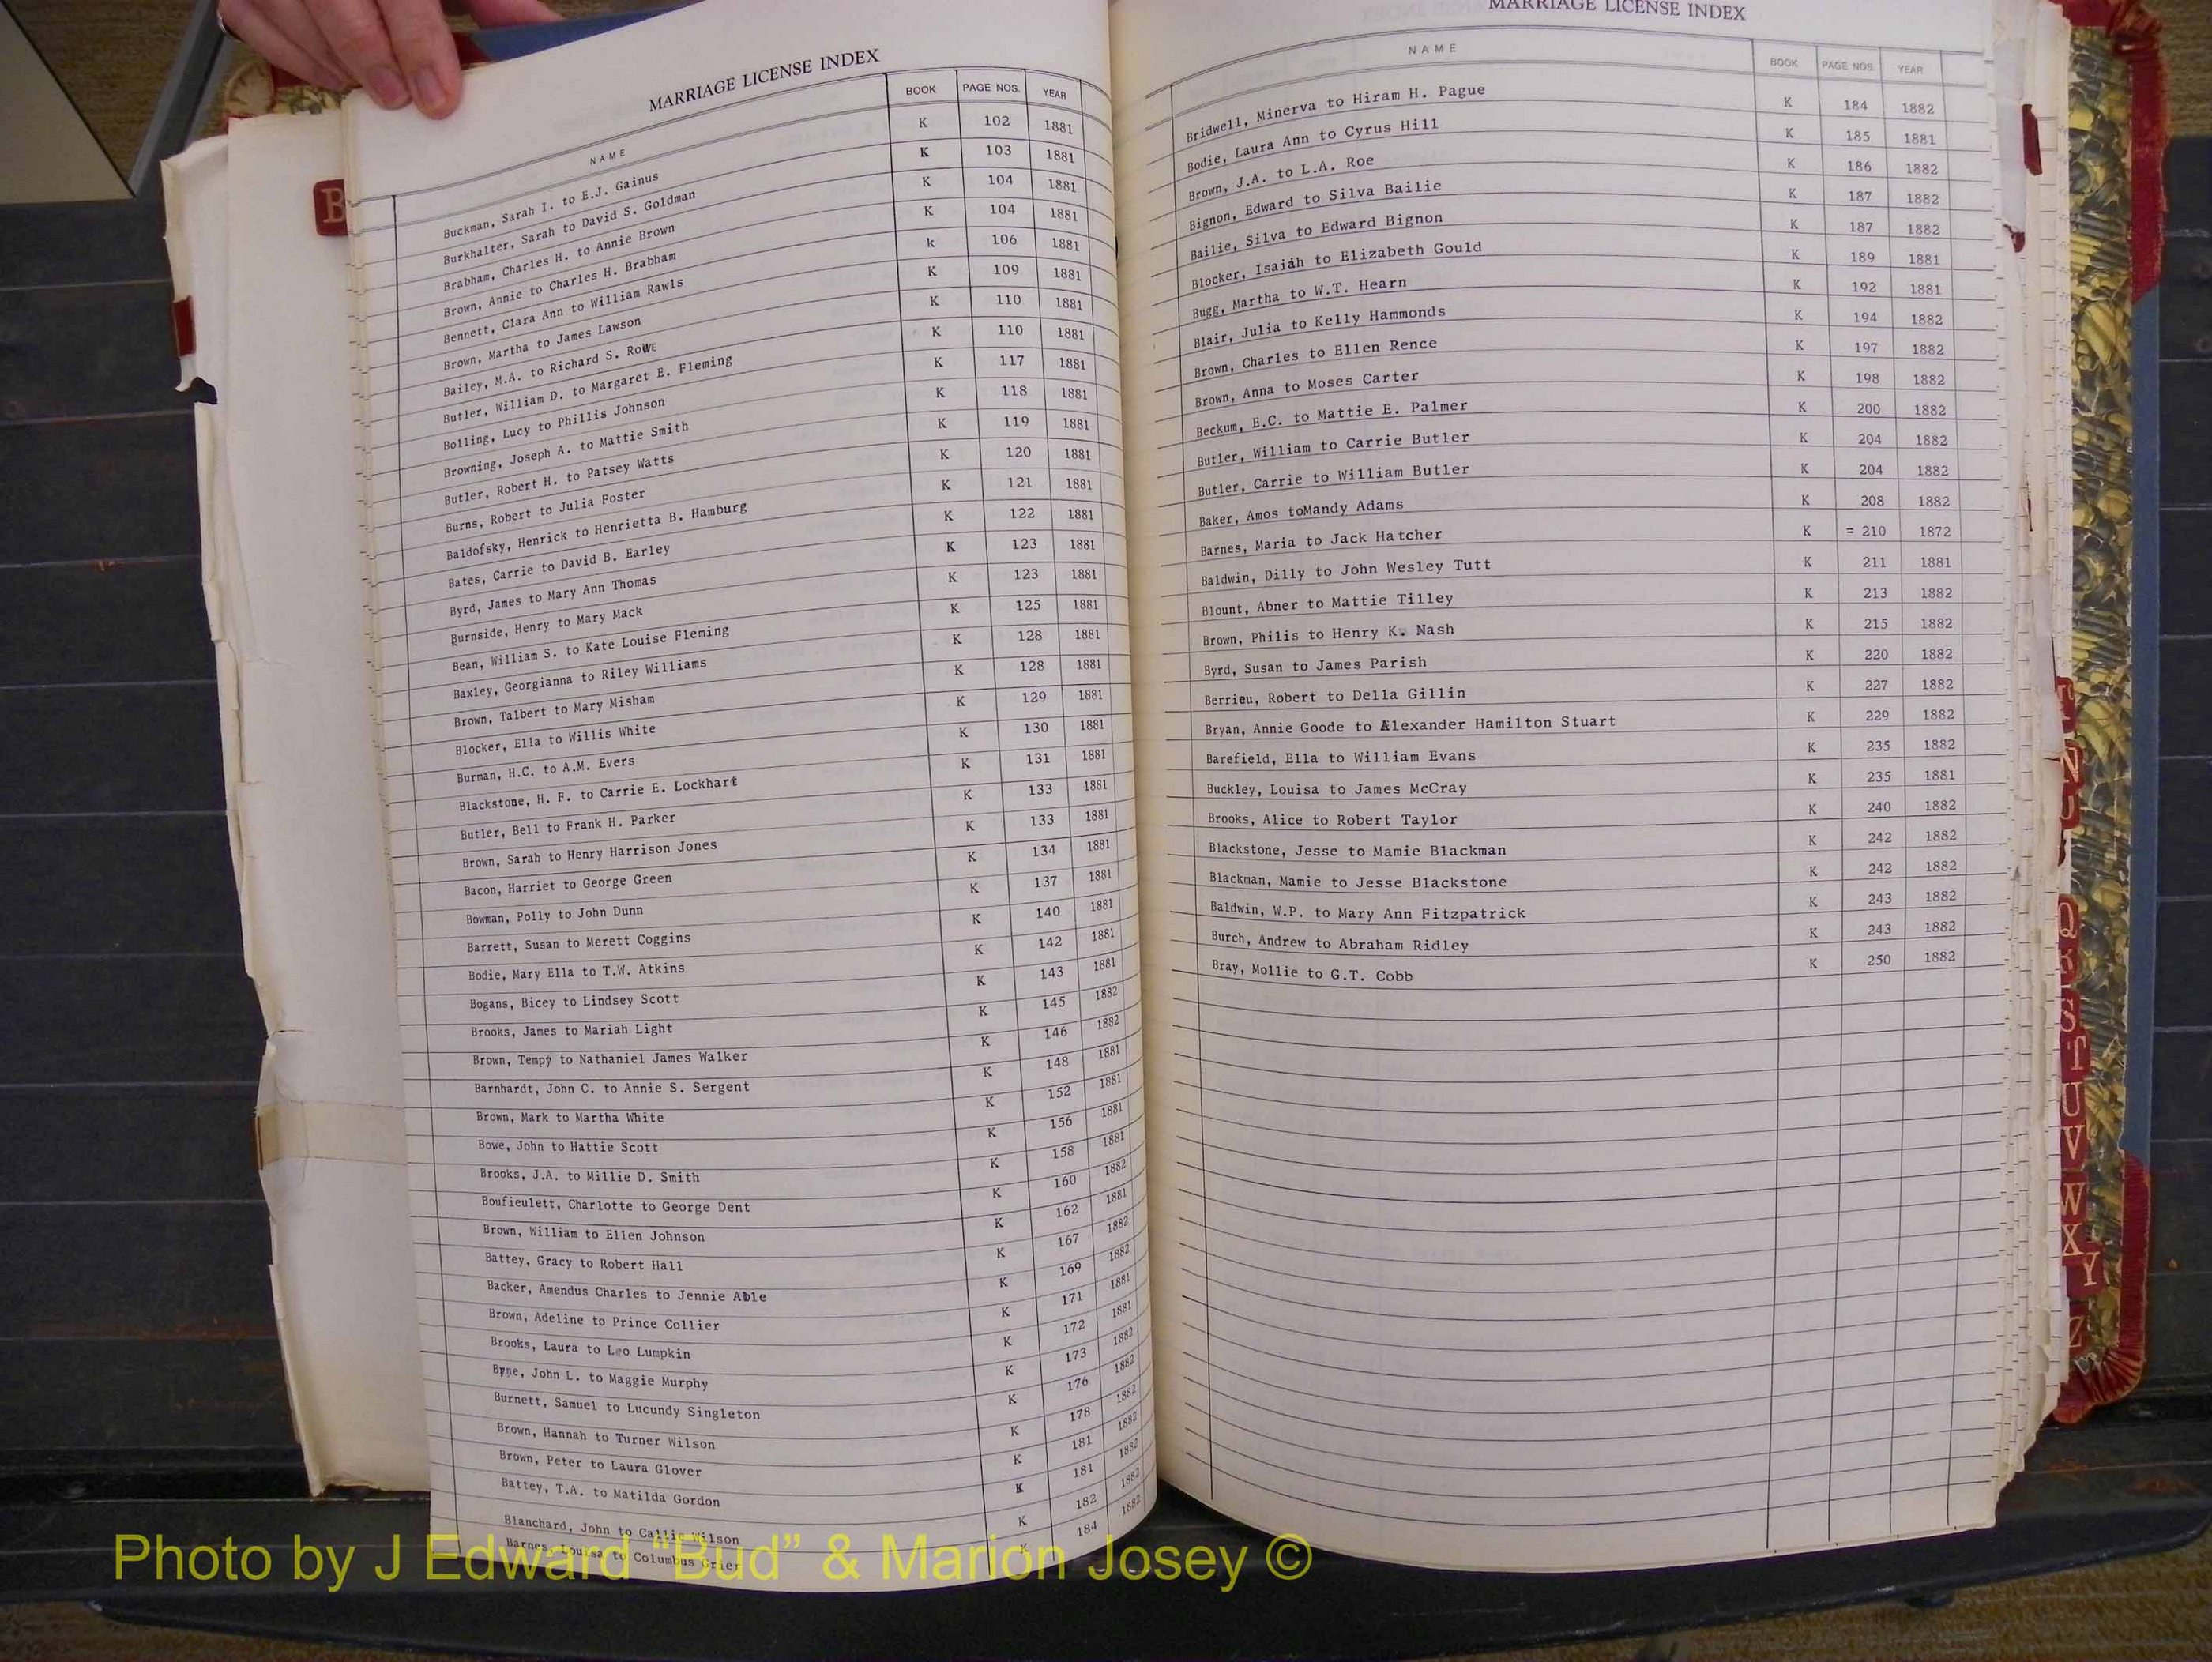 MARRIAGE LICENSE INDEX
NAME BOOK PAGE NOS. YEAR
Buckman, Sarah I. to E.J. Gainus K 102 1881
Burkhalter, Sarah to David S. Goldman K 103 1881
Brabham, Charles H. to Annie Brown K 104 1881
Brown, Annie to Charles H. Brabham K 104 1881
Bennett, Clara Ann to William Rawls k 106 1881
Brown, Martha to James Lawson K 109 1881
Bailey, M.A. to Richard S. Rowe K 110 1881
Butler, William D. to Margaret E. Fleming K 110 1881
Bolling, Lucy to Phillis Johnson K 117 1881
Browning, Joseph A. to Mattie Smith K 118 1881
Butler, Robert H. to Patsey Watts K 119 1881
Burns, Robert to Julia Foster K 120 1881
Baldofsky, Henrick to Henrietta B. Hamburg K 121 1881
Bates, Carrie to David B. Earley K 122 1881
Byrd, James to Mary Ann Thomas K 123 1881
Burnside, Henry to Mary Mack K 123 1881
Bean, William S. to Kate Louise Fleming K 125 1881
Baxley, Georgianna to Riley Williams K 128 1881
Brown, Talbert to Mary Misham K 128 1881
Blocker, Ella to Willis White K 129 1881
Burman, H.C. to A.M. Evers K 130 1881
Blackstone, H. F. to Carrie E. Lockhart K 131 1881
Butler, Bell to Frank H. Parker K 133 1881
Brown, Sarah to Henry Harrison Jones K 133 1881
Bacon, Harriet to George Green K 134 1881
Bowman, Polly to John Dunn K 137 1881
Barrett, Susan to Merett Coggins K 140 1881
Bodie, Mary Ella to T.W. Atkins K 142 1881
Bogans, Bicey to Lindsey Scott K 143 1881
Brooks, James to Mariah Light K 145 1882
Brown, Tempy to Nathaniel James Walker K 146 1882
Barnhardt, John C. to Annie S. Sergent K 148 1881
Brown, Mark to Martha White K 152 1881
Bowe, John to Hattie Scott K 156 1881
Brooks, J.A. to Millie D. Smith K 158 1881
Boufieulett, Charlotte to George Dent K 160 1882
Brown, William to Ellen Johnson K 162 1881
Battey, Gracy to Robert Hall K 167 1882
Backer, Amendus Charles to Jennie Able K 169 1882
Brown, Adeline to Prince Collier K 171 1881
Brooks, Laura to Leo Lumpkin K 172 1881
Byne, John L. to Maggie Murphy K 173 1882
Burnett, Samuel to Lucundy Singleton K 176 1882
Brown, Hannah to Turner Wilson K 178 1882
Brown, Peter to Laura Glover K 181 1882
Battey, T.A. to Matilda Gordon K 181 1882
Blanchard, John to Callie Wilson K 182 1882
Barnes, Louisa to Columbus Grier K 184 1882
MARRIAGE LICENSE INDEX
NAME BOOK PAGE NOS. YEAR
Bridwell, Minerva to Hiram H. Pague K 184 1882
Bodie, Laura Ann to Cyrus Hill K 185 1881
Brown, J.A. to L.A. Roe K 186 1882
Bignon, Edward to Silva Bailie K 187 1882
Bailie, Silva to Edward Bignon K 187 1882
Blocker, Isaiah to Elizabeth Gould K 189 1881
Bugg, Martha to W.T. Hearn K 192 1881
Blair, Julia to Kelly Hammonds K 194 1882
Brown, Charles to Ellen Rence K 197 1882
Brown, Anna to Moses Carter K 198 1882
Beckum, E.C. to Mattie E. Palmer K 200 1882
Butler, William to Carrie Butler K 204 1882
Butler, Carrie to William Butler K 204 1882
Baker, Amos toMandy Adams K 208 1882
Barnes, Maria to Jack Hatcher K = 210 1872
Baldwin, Dilly to John Wesley Tutt K 211 1881
Blount, Abner to Mattie Tilley K 213 1882
Brown, Philis to Henry K. Nash K 215 1882
Byrd, Susan to James Parish K 220 1882
Berrieu, Robert to Della Gillin K 227 1882
Bryan, Annie Goode to Alexander Hamilton Stuart K 229 1882
Barefield, Ella to William Evans K 235 1882
Buckley, Louisa to James McCray K 235 1881
Brooks, Alice to Robert Taylor K 240 1882
Blackstone, Jesse to Mamie Blackman K 242 1882
Blackman, Mamie to Jesse Blackstone K 242 1882
Baldwin, W.P. to Mary Ann Fitzpatrick K 243 1882
Burch, Andrew to Abraham Ridley K 243 1882
Bray, Mollie to G.T. Cobb K 250 1882
B
N
Q
R
S
T
U
V
W
X
Y
Z
Photo by J Edward “Bud” & Marion Josey ©